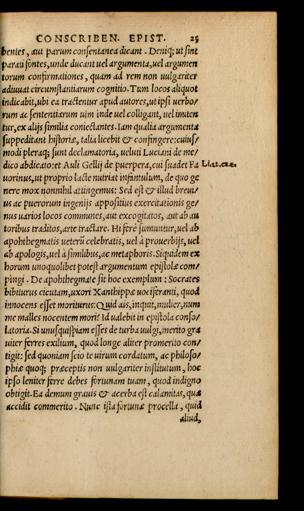 CONSCRIBEN. EPIST. 25
bentes, aut parum consentanea dicant. Deniq; ut sint
parati fontes, unde ducant uel argumenta, uel argumen
torum confirmationes, quam ad rem non uulgariter
adiuuat circumstantiarum cognitio. Tum locos aliquot
indicabit, ubi ea tractentur apud autores, ut ipsi uerbo/
rum ac sententiarum uim inde uel colligant, uel imiten
tur, ex alijs similia coniectantes. Iam qualia argumenta
suppeditant historiæ, talia licebit & confingere: cuius/
modi pleraq; sunt declamatoria, ueluti Luciani de me/
dico abdicato: et Auli Gellij de puerpera, cui suadet Fa
uorinus, ut proprio lacte nutriat infantulum, de quo ge
nere mox nonnihil attingemus: Sed est & illud breui/
us ac puerorum ingenijs appositius exercitationis ge/
nus uarios locos communes, aut excogitatos, aut ab au
toribus traditos, arte tractare. Hi ferè sumuntur, uel ab
apophthegmatis ueterũ celebratis, uel à prouerbijs, uel
ab apologis, uel à similibus, ac metaphoris. Siquidem ex
horum unoquolibet potest argumentum epistolæ com/
pingi. De apophthegmate sit hoc exemplum: Socrates
bibiturus cicutam, uxori Xanthippæ uociferanti, quod
innocens esset moriturus: Quid ais, inquit, mulier, num
me malles nocentem mori? Id ualebit in epistola conso/
latoria. Si unusquispiam esses de turba uulgi, merito gra
uiter ferres exilium, quod longe aliter promerito con/
tigit: sed quoniam scio te uirum cordatum, ac philoso/
phiæ quoq; præceptis non uulgariter institutum, hoc
ipso leniter ferre debes fortunam tuam, quod indigno
obtigit. Ea demum grauis & acerba est calamitas, quæ
accidit commerito. Nunc ista fortunæ procella, quid
aliud,